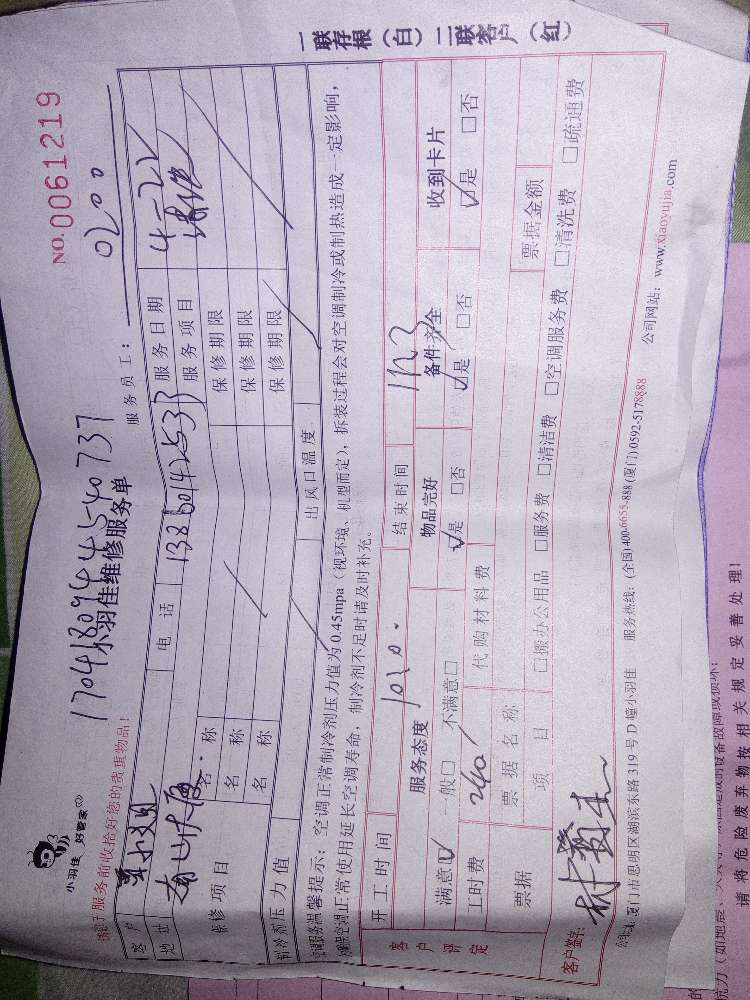 小羽佳 好管家
NO.0061219
17041809444540737
小羽佳维修服务单
服务前收拾好您的贵重物品!
服务员工: 0200
客户 电话 13860142533 服务日期 4-22
地址 南山大厦 服务项目 清洗
保修项目 名称 保修期限
名称 保修期限
名称 保修期限
制冷剂压力值 出风口温度
空调服务温馨提示:空调正常制冷剂压力值为0.45mpa(视环境、机型而定),拆装过程会对空调制冷或制热造成一定影响,
为确保空调正常使用延长空调寿命,制冷剂不足时请及时补充。
开工时间 1010. 结束时间 1123
客户评定 服务态度 物品完好 备件齐全 收到卡片
满意☑ 一般□ 不满意□ ☑是 □否 ☑是 □否 ☑是 □否
工时费 240 代购材料费
票据 票据名称 票据金额
项目 □搬办公用品 □服务费 □清洁费 □空调服务费 □清洗费 □疏通费
客户签名:
厦门市思明区湖滨东路319号D幢小羽佳 服务热线:(全国)400-6655-888(厦门)0592-5178888 公司网站:www.xiaoyujia.com
一联存根(白)二联客户(红)
请将危险废弃物按相关规定妥善处理!